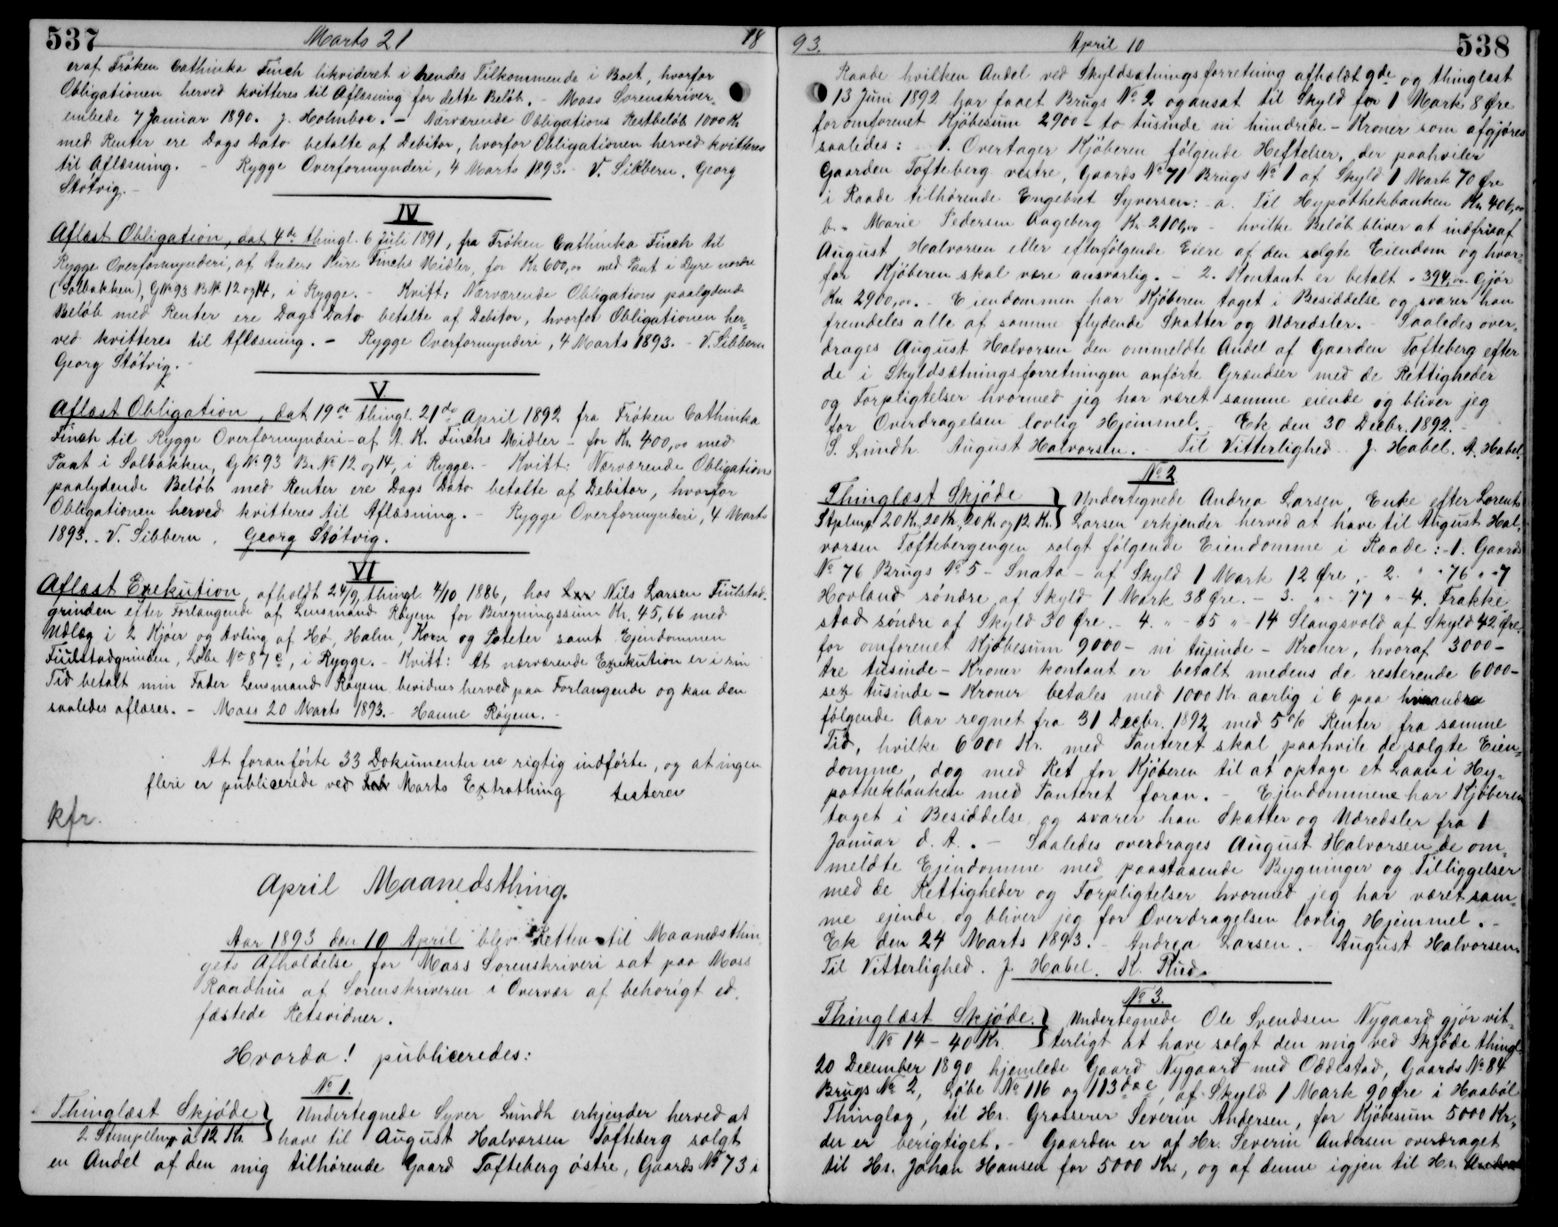 537 Marts 21 18
eraf Frøken Cathinka Finch likvideret i hendes Tilkommende i Boet, hvorfor
Obligationen herved kvitteres til Aflæsning for dette Beløb. - Moss Sorenskriver-
embede 7 Januar 1890. J. Holmboe. - Nærværende Obligations Restbeløb 1000 Kr
med Renter ere Dags Dato betalte af Debitor, hvorfor Obligationen herved kvitteres
til Aflæsning. - Rygge Overformynderi, 4 Marts 1893. V. Sibbern. Georg
Støtvig.
IV
Aflæst Obligation, dat 4de thingl. 6 Juli 1891, fra Frøken Cathinka Finch til
Rygge Overformynderi, af Anders Kure Finchs Midler, for Kr 600,00 med Pant i Dyre nordre
(Solbakken), G№ 93 B№ 12 og 14, i Rygge. - Kvitt: Nærværende Obligations paalydende
Beløb med Renter ere Dags Dato betalte af Debitor, hvorfor Obligationen her-
ved kvitteres til Aflæsning. - Rygge Overformynderi, 4 Marts 1893. - V. Sibbern
Georg Støtvig.
V
Aflæst Obligation, dat 19de thingl. 21de April 1892 fra Frøken Cathinka
Finch til Rygge Overformynderi - af A. K. Finchs Midler - for Kr 400,00 med
Pant i Solbakken, G№ 93 Br.№ 12 og 14, i Rygge. - Kvitt: Nærværende Obligations
paalydende Beløb med Renter ere Dags Dato betalte af Debitor, hvorfor
Obligationen herved kvitteres til Aflæsning. - Rygge Overformynderi, 4 Marts
1893. - V. Sibbern. Georg Støtvig.
VI
Aflæst Exekution, afholdt 24/9, thingl. 4/10 1886, hos Nils Larsen Fuilstad-
grinden efter Forlangende af Lensmand Røyem for Beregningssum Kr. 45,66 med
Udlæg i 2 Kjøer og Avling af Hø, Halm, Korn og Poteter samt Ejendommen
Fuilstadgrinden, Løbe No 87c, i Rygge. - Kvitt: At nærværende Exekution er i sin
Tid betalt min Fader Lensmand Røyem bevidnes herved paa Forlangende og kan den
saaledes aflæses. - Moss 20 Marts 1893. Hanne Røyem. -
At foranførte 33 Dokumenter ere rigtig indførte, og at ingen
flere er publicerede ved Marts Extrathing testerer
kfr.
April Maanedsthing.
Aar 1893 den 10 April blev Retten til Maanedsthin-
gets Afholdelse for Moss Sorenskriveri sat paa Moss
Raadhus af Sorenskriveren i Overvær af behørigt ed-
fæstede Retsvidner.
Hvorda! publiceredes:
№ 1.
Thinglæst Skjøde } Undertegnede Syver Lundh erkjender herved at
2 Stempler à 12 Kr. } have til August Halvorsen Tofteberg solgt
en Andel af den mig tilhørende Gaard Tofteberg østre, Gaards № 73 i
93. April 10 538
Raade hvilken Andel ved Skyldsætningsforretning afholdt 9de og thinglæst
13 Juni 1892 har faaet Brugs № 2 og ansat til Skyld for 1 Mark 8 Øre
for omforenet Kjøbesum 2900 - to tusinde ni hundrede - Kroner som afgjøres
saaledes: - 1. Overtager Kjøberen følgende Heftelser, der paahviler
Gaarden Tofteberg vestre, Gaards № 71 Brugs № 1 af Skyld 1 Mark 70 Øre
i Raade tilhørende Engebret Syversen: a. Til Hypothekbanken Kr 406,00
b. " Marie Pedersen Augeberg Kr 2100,00 - hvilke Beløb bliver at indfri af
August Halvorsen eller efterfølgende Eiere af den solgte Eiendom og hvor-
for Kjøberen skal være ansvarlig. - 2. Kontant er betalt " 394,00 Gjør
Kr 2900,00. - Eiendommen har Kjøberen taget i Besiddelse og svarer han
fremdeles alle af samme flydende Skatter og Udredsler. - Saaledes over-
drages August Halvorsen den ommeldte Andel af Gaarden Tofteberg efter
de i Skyldsætningsforretningen anførte Grændser med de Rettigheder
og Forpligtelser hvormed jeg har været samme eiende og bliver jeg
for Overdragelsen lovlig Hjemmel. Ek den 30 Decbr. 1892. -
S. Lundh August Halvorsen. - Til Vitterlighed J. Habel. A. Habel.
№ 2
Thinglæst Skjøde } Undertegnede Andrea Larsen, Enke efter Lorents
Stpling 20 Kr, 20 Kr, 20 Kr og 12 Kr. } Larsen erkjender herved at have til August Hal-
vorsen Toftebergengen solgt følgende Eiendomme i Raade: - 1. Gaards
№ 76 Brugs № 5 - Snata - af Skyld 1 Mark 12 Øre, - 2. " " 76 " " 7
Hovland søndre, af Skyld 1 Mark 38 Øre. - 3. " " 77 " " 4. Frakke
stad søndre af Skyld 30 Øre. - 4. " " 65 " " 14 Slangsvold af Skyld 42 Øre
for omforenet Kjøbesum 9000 - ni tusinde - Kroner, hvoraf 3000 -
tre tusinde - Kroner kontant er betalt medens de resterende 6000 -
sex tusinde - Kroner betales med 1000 Kr aarlig i 6 paa hinandre
følgende Aar regnet fra 31 Decbr. 1892 med 5 % Renter fra samme
Tid, hvilke 6000 Kr. med Panteret skal paahvile de solgte Eien-
domme, dog med Ret for Kjøberen til at optage et Laan i Hy-
pothekbanken med Panteret foran. - Ejendommene har Kjøberen
taget i Besiddelse og svarer han Skatter og Udredsler fra 1
Januar d. A. - Saaledes overdrages August Halvorsen de om-
meldte Ejendomme med paastaaende Bygninger og Tilliggelser
med de Rettigheder og Forpligtelser hvormed jeg har været sam-
me ejende og bliver jeg for Overdragelsen lovlig Hjemmel. -
Ek den 24 Marts 1893. - Andrea Larsen. - August Halvorsen.
Til Vitterlighed. J. Habel. K. Rud.
№ 3.
Thinglæst Skjøde. } Undertegnede Ole Svendsen Nygaard gjør vit-
№ 14 - 40 Kr. } terligt at have solgt den mig ved Skjøde thingl.
20 December 1890 hjemlede Gaard Nygaard med Oddestad, Gaards № 84
Brugs № 2, Løbe № 116 og 113, af Skyld 1 Mark 90 Øre i Haabøl
Thinglag, til Hr. Grosserer Severin Andersen, for Kjøbesum 5000 Kr,
der er berigtiget. - Gaarden er af Hr. Severin Andersen overdraget
til Hr. Johan Hansen for 5000 Kr, og af denne igjen til Hr.